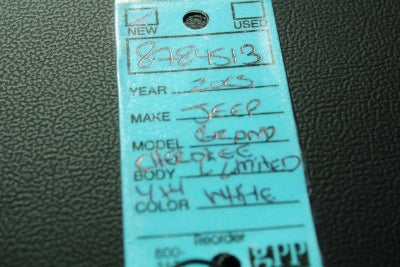 NEW USED
8784513
YEAR 2013
MAKE JEEP
MODEL GRAND
CHEROKEE
BODY LIMITED
4X4
COLOR WHITE
Reorder
800- gpp